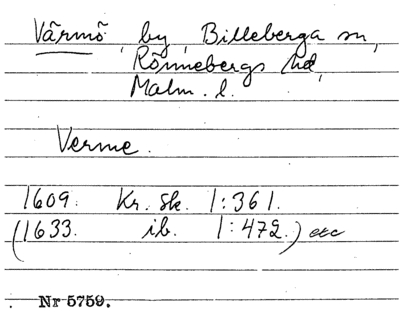 Värmö, by, Billeberga sn,
Rönnebergs hd,
Malm. l.
Verme.
1609. Kr. Sk. 1:361.
(1633. ib. 1:472.) etc
Nr 5759.